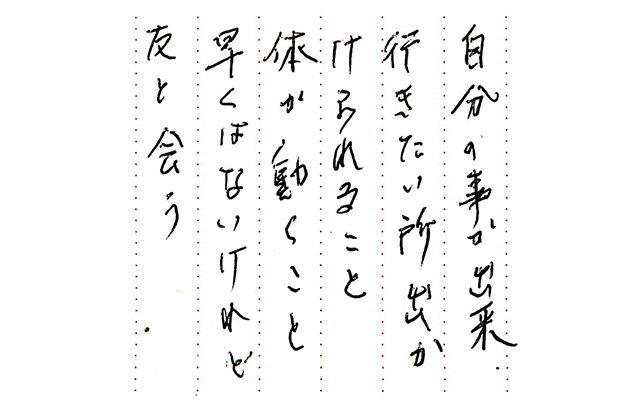 自分の事が出来
行きたい所出か
けられること
体が動くこと
早くはないけれど
友と会う